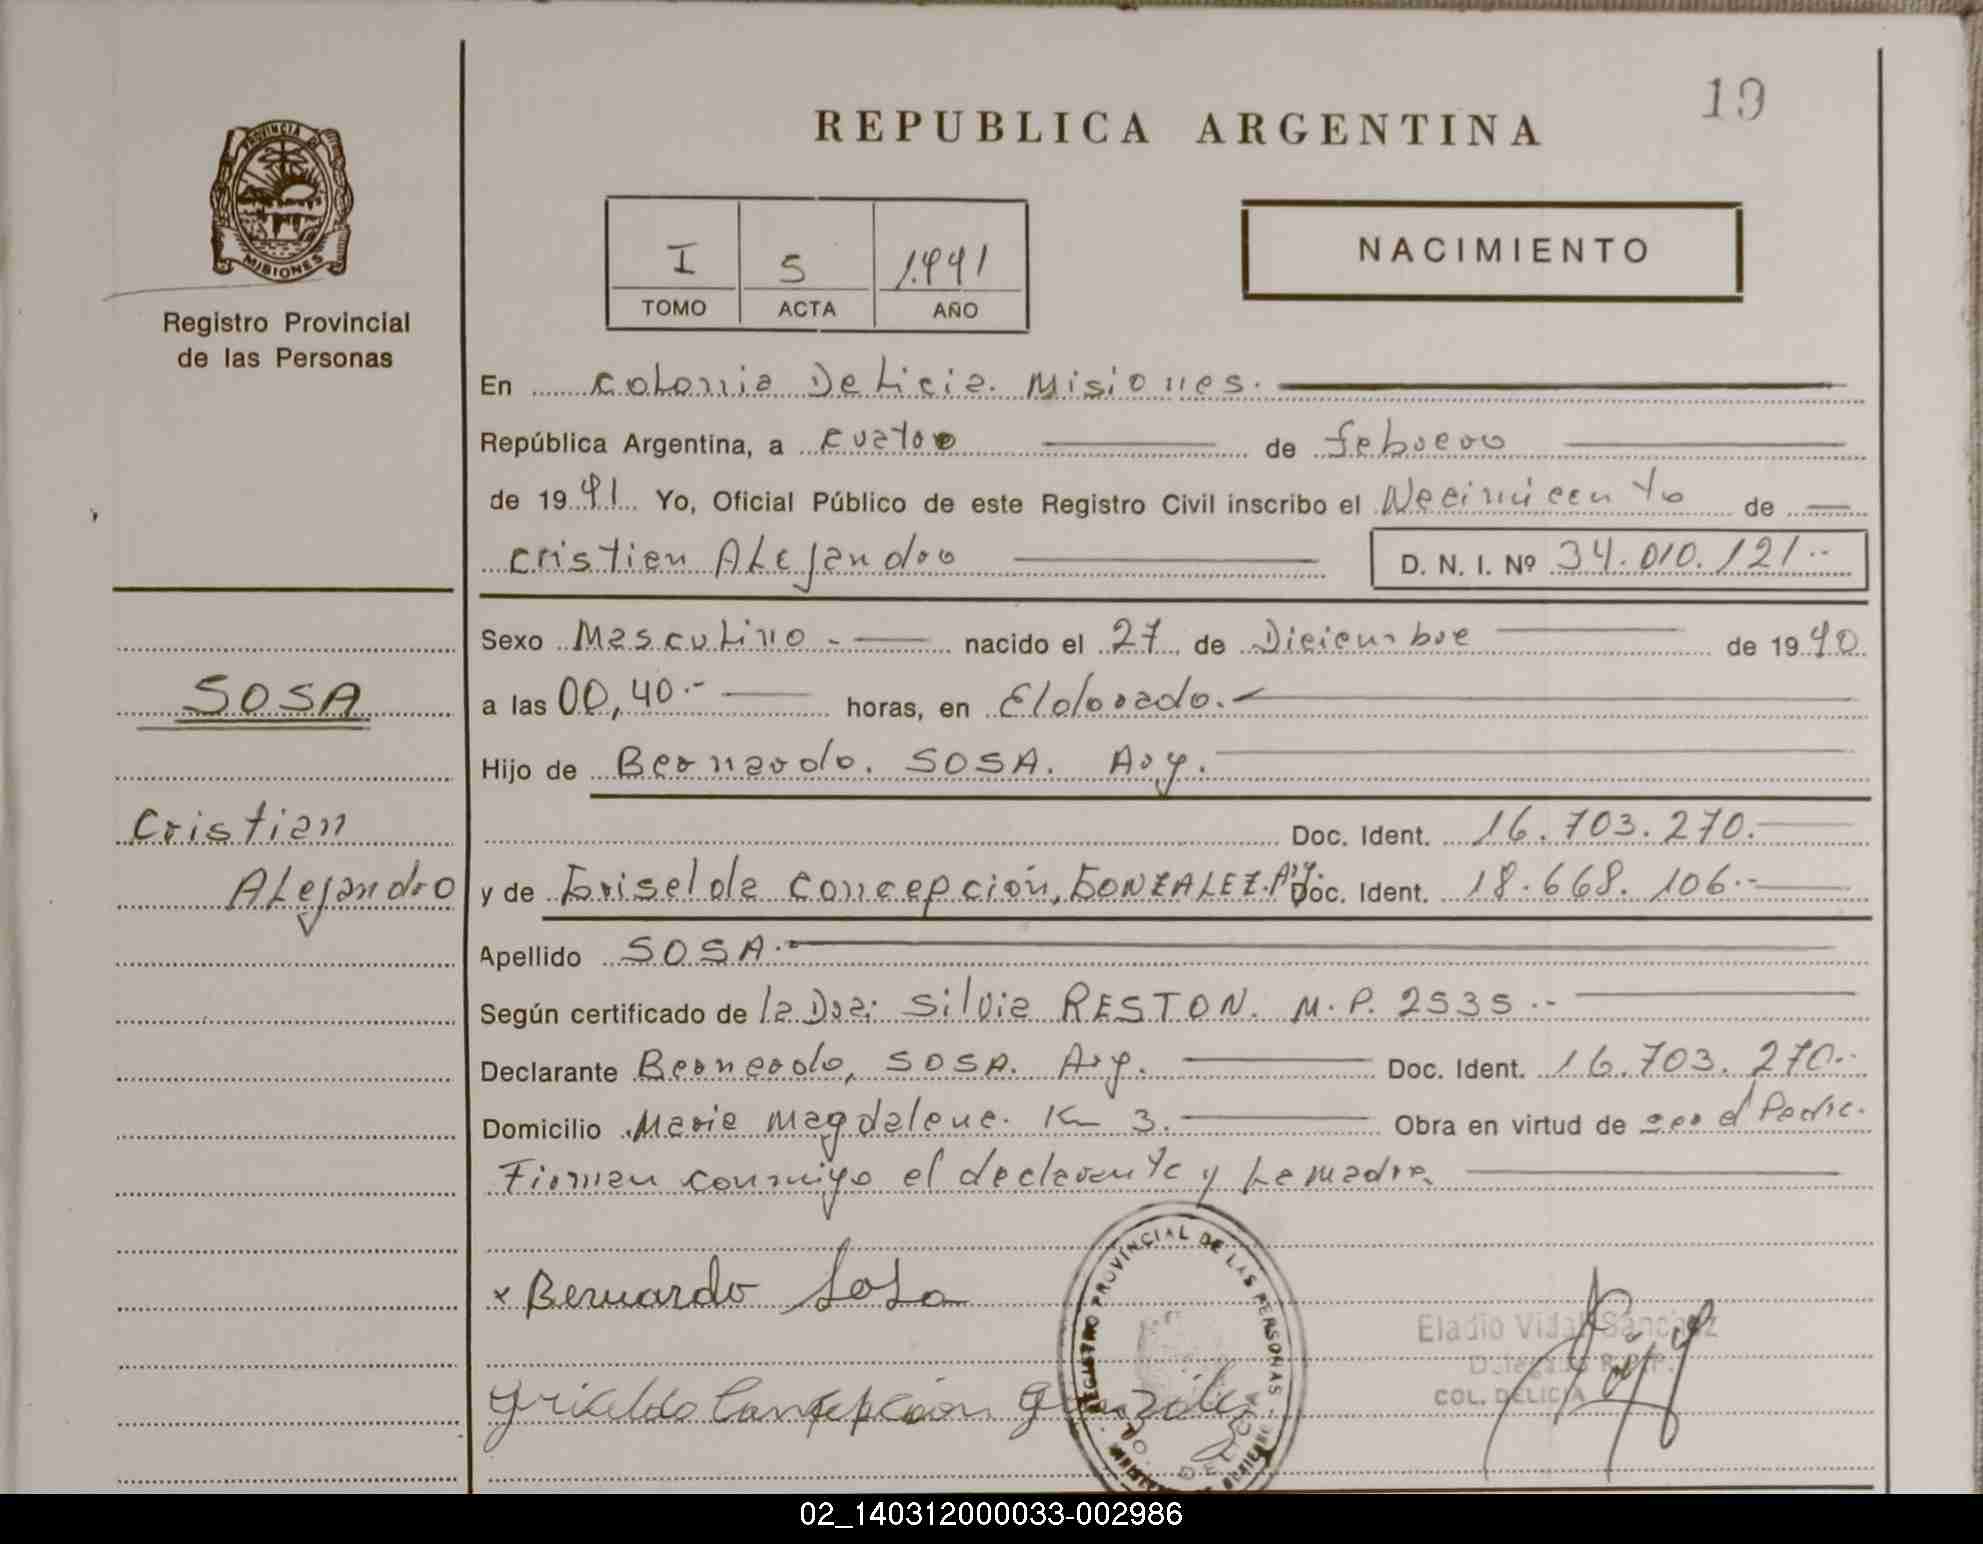 19
REPUBLICA ARGENTINA
PROVINCIA DE
MISIONES
Registro Provincial
de las Personas
I 5 1.991
TOMO ACTA AÑO
NACIMIENTO
En Colonia Delicia. Misiones.
República Argentina, a cuatro de febrero
de 1991 Yo, Oficial Público de este Registro Civil inscribo el Nacimiento de
Cristian ALejandro D. N. I. Nº 34.010.121.-
Sexo Masculino.- nacido el 27 de Diciembre de 1990
SOSA
a las 00,40.- horas, en Eldorado.
Hijo de Bernardo. SOSA. Arg.
Cristian
Doc. Ident. 16.703.270.
ALejandro
y de Griselda Concepción, GONZALEZ. Arg. Doc. Ident. 18.668.106.-
Apellido SOSA.
Según certificado de la Dra: Silvia RESTON. M.P. 2535.-
Declarante Bernardo, SOSA. Arg. Doc. Ident. 16.703.270.-
Domicilio Maria Magdalena. Km 3. Obra en virtud de ser el Padre.
Firman conmigo el declarante y La madre.
x Bernardo Sosa
REGISTRO PROVINCIAL DE LAS PERSONAS
DELICIA
Eladio Vidal Sánchez
Delegado R.P.P.
COL. DELICIA
Griselda Concepcion Gonzalez
02_140312000033-002986